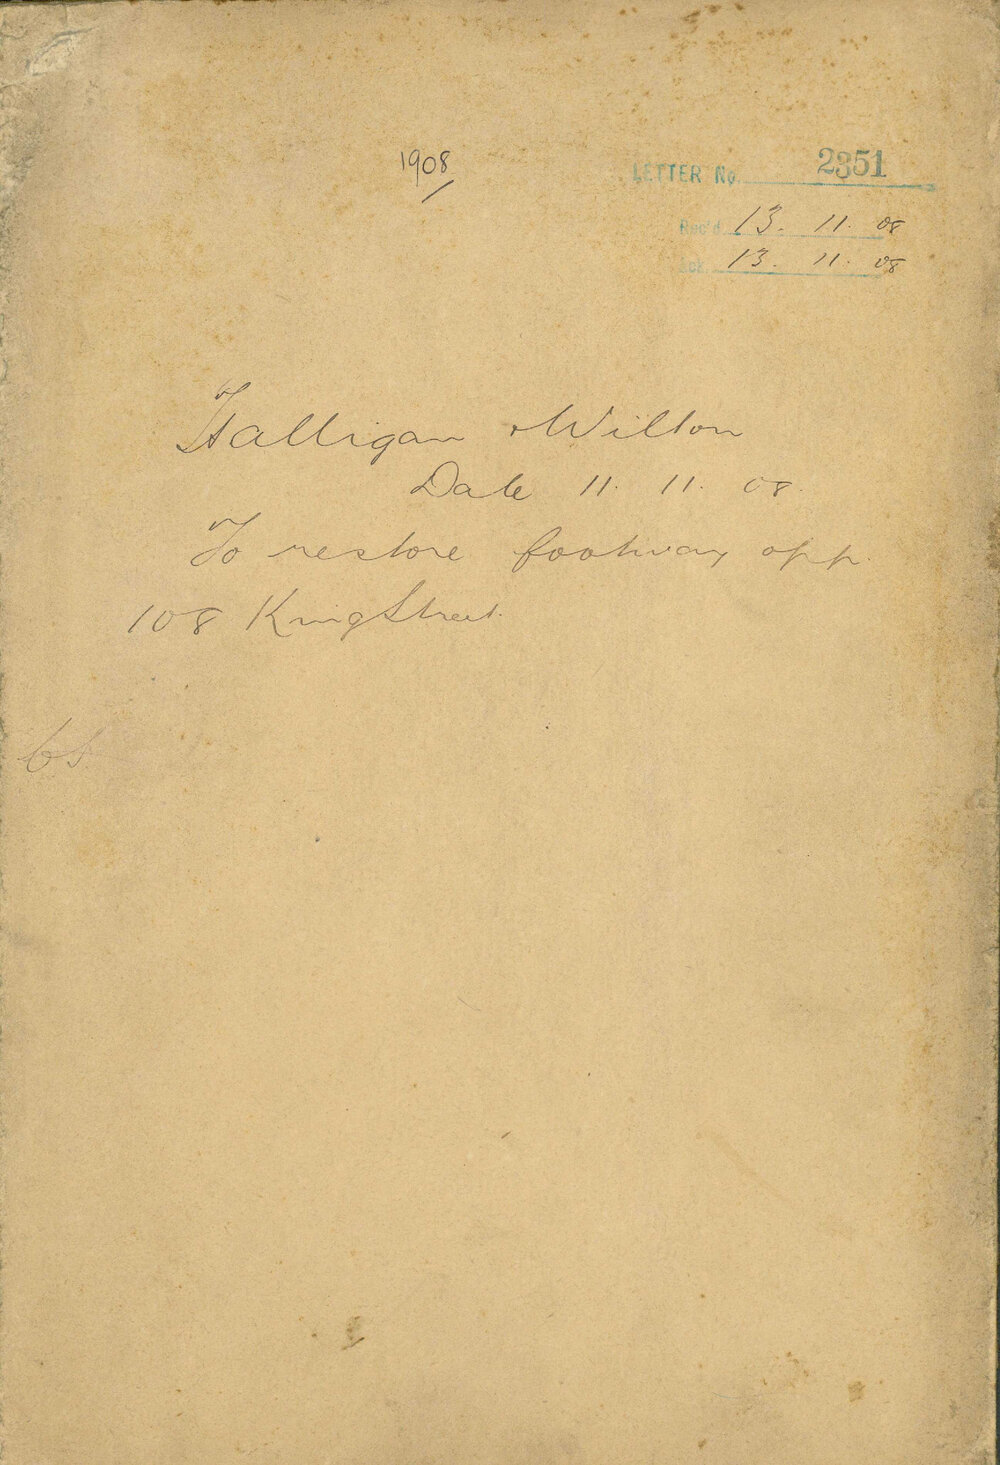 1908/
LETTER No. 2351
Rec'd 13. 11. 08
Ack 13. 11. 08
Halligan & Wilton
Date 11. 11. 08.
To restore footway opp.
108 King Street.